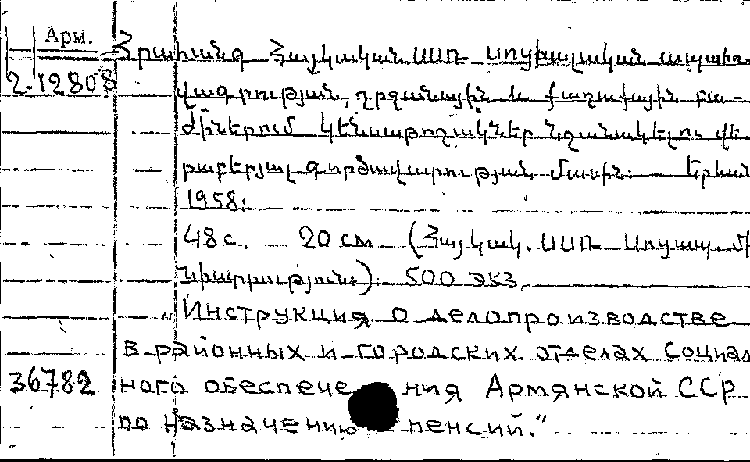 Арм.
2.12808
Հրահանգ Հայկական ՍՍՌ սոցիալական ապահո-
վագրության, շրջանային և քաղաքային բա-
ժիններում կենսաթոշակներ նշանակելու վե-
րաբերյալ գործավարության մասին: Երևան
1958:
48 с. 20 см (Հայկակ. ՍՍՌ Սոցապ. Մ
նիստրություն): 500 экз.
„Инструкция о делопроизводстве
в районных и городских отделах социаль
36782 ного обеспечения Армянской ССР
по назначению пенсий.“